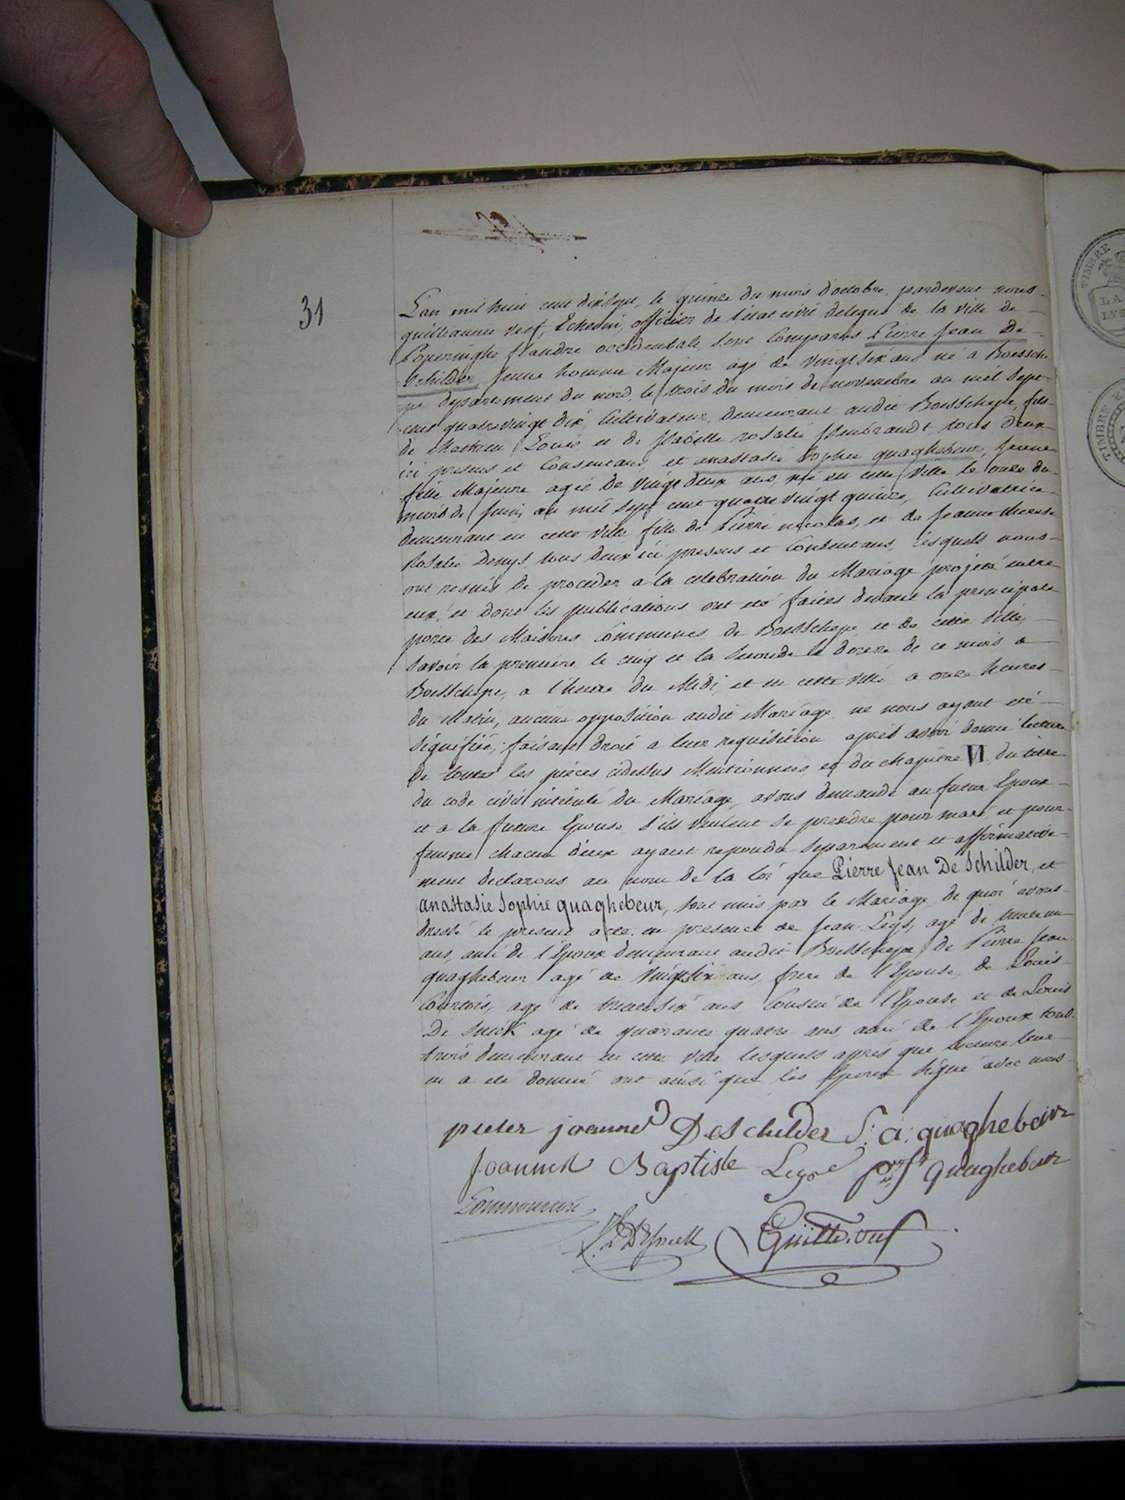 31
L'an mil huit cent dixsept, le quinze du mois d'octobre, pardevant nous
guillaume officier de l'état civil delegué de la ville de
Poperinghe flandre occidentale, sont comparus Pierre Jean De
Schilder Jeune homme Majeur agé de vingtsix ans né à Boessche
pe departement du nord, le trois du mois de novembre au mil sept
cent quatrevingt dix, Cultivateur, demeurant audit Boesschepe, fils
de Louis et de Isabelle rosalie tous deux
ici presens et Consentans, et anastasie Sophie quaghebeur, Jeune
fille Majeure agée de vingtdeux ans, née en cette ville le onze du
mois de Juin, an mil sept cent quatrevingt quinze, Cultivatrice
demeurant en cette ville fille de Pierre nicolas, et de Jeanne therese
Rosalie Denys tous deux ici presens et Consentans, lesquels nous
ont requis de proceder a la celebration du Mariage projeté entre
eux, et dont les publications ont été faites devant la principale
porte des Maisons Communes de Boesschepe et de cette ville,
Savoir la premiere le cinq et la Seconde le douze de ce mois a
Boesschepe, a l'heure du Midi, et en cette ville a onze heures
du Matin, aucune opposition audit Mariage ne nous ayant été
Signifiée, faisant droit a leur requisition après avoir donné lecture
de toutes les pièces cidessus Mentionnées, et du chapitre VI du titre
du code civil intitulé du Mariage, avons demandé au futur Epoux
et a la future Epouse s'ils veulent se prendre pour mari et pour
femme, chacun d'eux ayant repondu Separement et affirmative
ment declarons au nom de la loi que Pierre Jean De Schilder, et
anastasie Sophie quaghebeur, sont unis par le Mariage de quoi avons
dressé le present acte. en presence de Jean Leys, agé de trente un
ans, ami de l'Epoux demeurant audit Boesschepe, de Pierre Jean
quaghebeur agé de vingtsix ans, frere de l'Epouse, de Louis
agé de trentesix ans Cousin de l'Epouse et de Louis
De agé de quarante quatre ans, ami de l'Epoux tous
trois demeurant en cette ville lesquels après que lecture leur
en a été donnée ont ainsi que les Epoux signé avec nous
pieter joannes DesChilder S: a: quaghebeur
Joannes Baptiste Leys quaghebeur